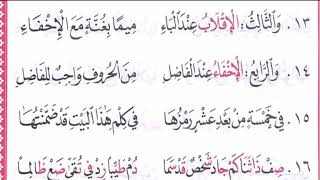 ١٣. وَالثَّالِثُ : الْإِقْلَابُ عِنْدَ الْبَاءِ مِيمًا بِغُنَّةٍ مَعَ الْإِخْفَاءِ
١٤. وَالرَّابِعُ : الْإِخْفَاءُ عِنْدَ الْفَاضِلِ مِنَ الْحُرُوفِ وَاجِبٌ لِلْفَاضِلِ
١٥. فِي خَمْسَةٍ مِنْ بَعْدِ عَشْرٍ رَمْزُهَا فِي كِلْمِ هٰذَا الْبَيْتِ قَدْ ضَمَّنْتُهَا
١٦. صِفْ ذَا ثَنَا كَمْ جَادَ شَخْصٌ قَدْ سَمَا دُمْ طَيِّبًا زِدْ فِي تُقًى ضَعْ ظَالِمَا